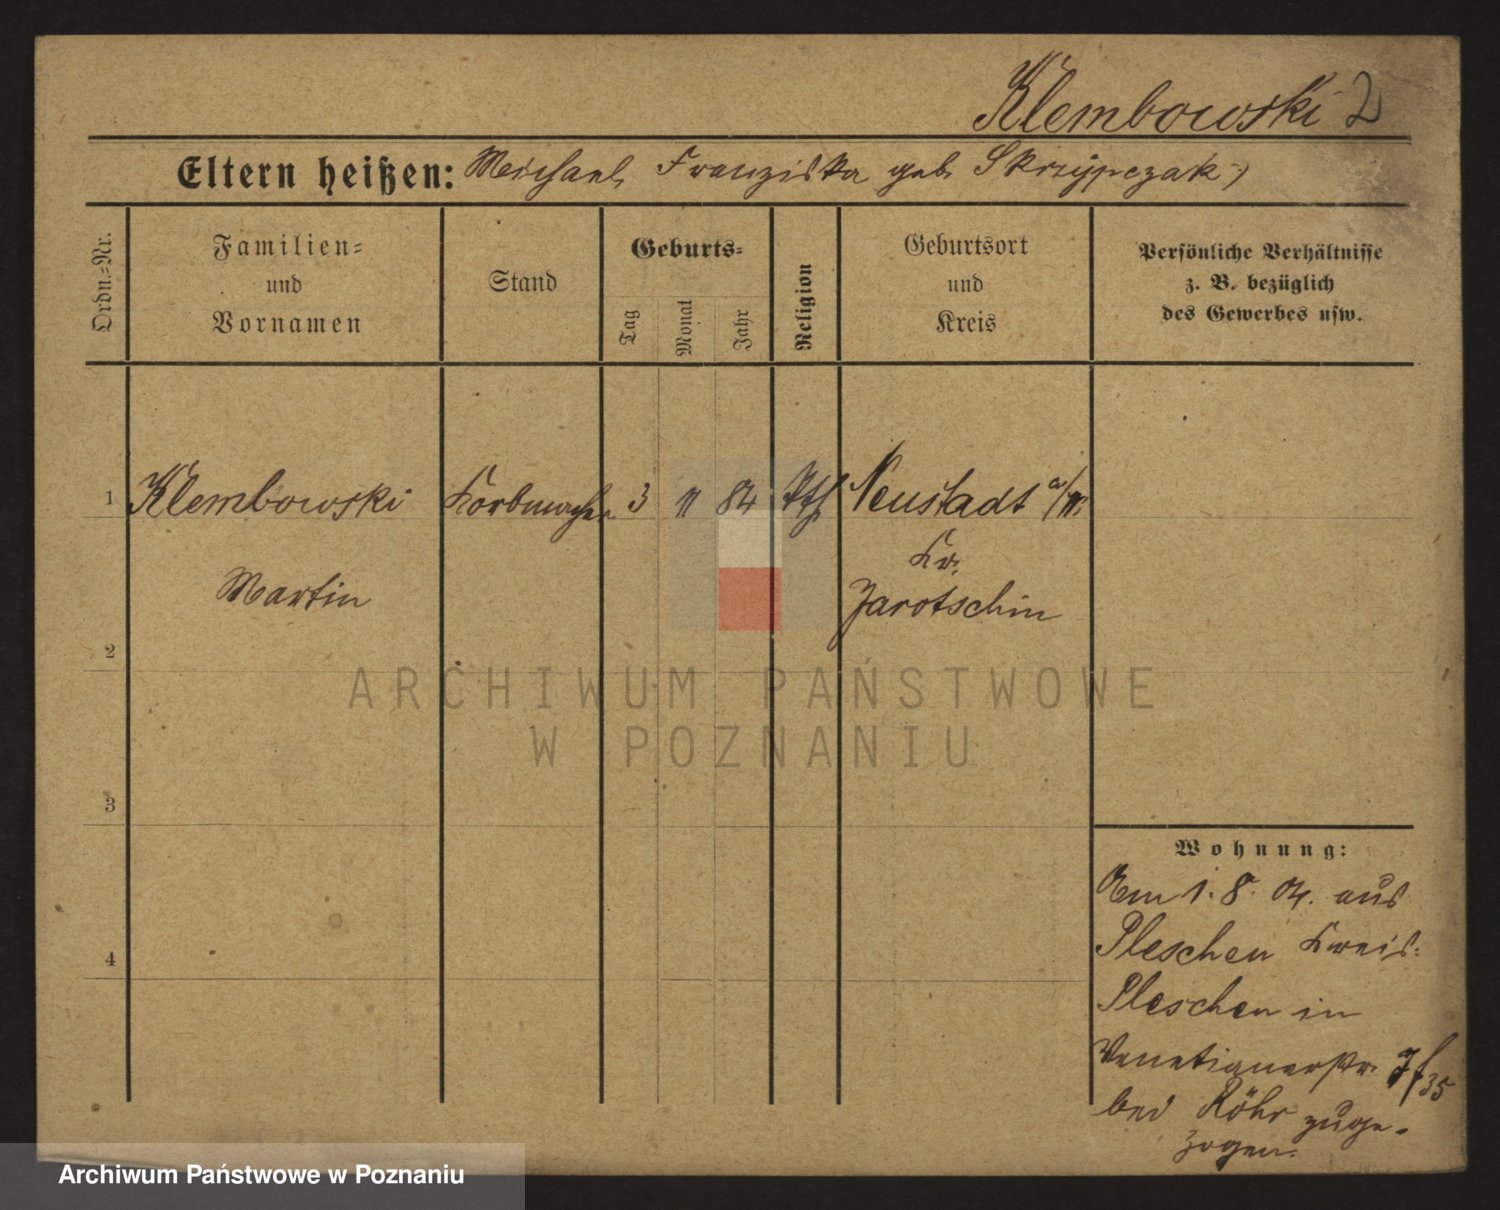 Klembowski 2
Eltern heißen: Michael, Franziska geb. Skrzypczak
Ordn.-Nr.
Familien-
und
Vornamen
Stand
Geburts-
Tag
Monat
Jahr
Religion
Geburtsort
und
Kreis
Persönliche Verhältnisse
z. B. bezüglich
des Gewerbes usw.
1 Klembowski Korbmacher 3 11 84 kth Neustadt a/W.
Kr.
Martin
Jarotschin
2
ARCHIWUM PAŃSTWOWE
W POZNANIU
3
Wohnung:
Am 1. 8. 04. aus
4
Pleschen Kreis
Pleschen in
Venetianerstr.
bei Röhr zuge-
zogen.
Archiwum Państwowe w Poznaniu